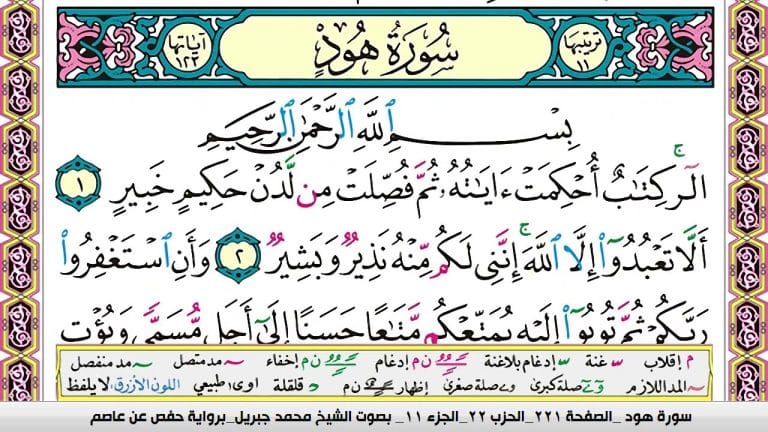 ترتيبها ١١
سُورَةُ هُودٍ
آياتها ١٢٣
بِسْمِ ٱللَّهِ ٱلرَّحْمَٰنِ ٱلرَّحِيمِ
الٓر ۚ كِتَٰبٌ أُحْكِمَتْ ءَايَٰتُهُۥ ثُمَّ فُصِّلَتْ مِن لَّدُنْ حَكِيمٍ خَبِيرٍ ١
أَلَّا تَعْبُدُوٓا۟ إِلَّا ٱللَّهَ ۚ إِنَّنِى لَكُم مِّنْهُ نَذِيرٌ وَبَشِيرٌ ٢ وَأَنِ ٱسْتَغْفِرُوا۟
رَبَّكُمْ ثُمَّ تُوبُوٓا۟ إِلَيْهِ يُمَتِّعْكُم مَّتَٰعًا حَسَنًا إِلَىٰٓ أَجَلٍ مُّسَمًّى وَيُؤْتِ
م إقلاب غنة إدغام بلاغنة ن م إدغام ن م إخفاء مد متصل مد منفصل
المد اللازم صلة كبرى صلة صغرى إظهار ن م قلقلة اوى، طبيعي اللون الأزرق لايلفظ
سورة هود _الصفحة ٢٢١_الحزب ٢٢_الجزء ١١_ بصوت الشيخ محمد جبريل_برواية حفص عن عاصم